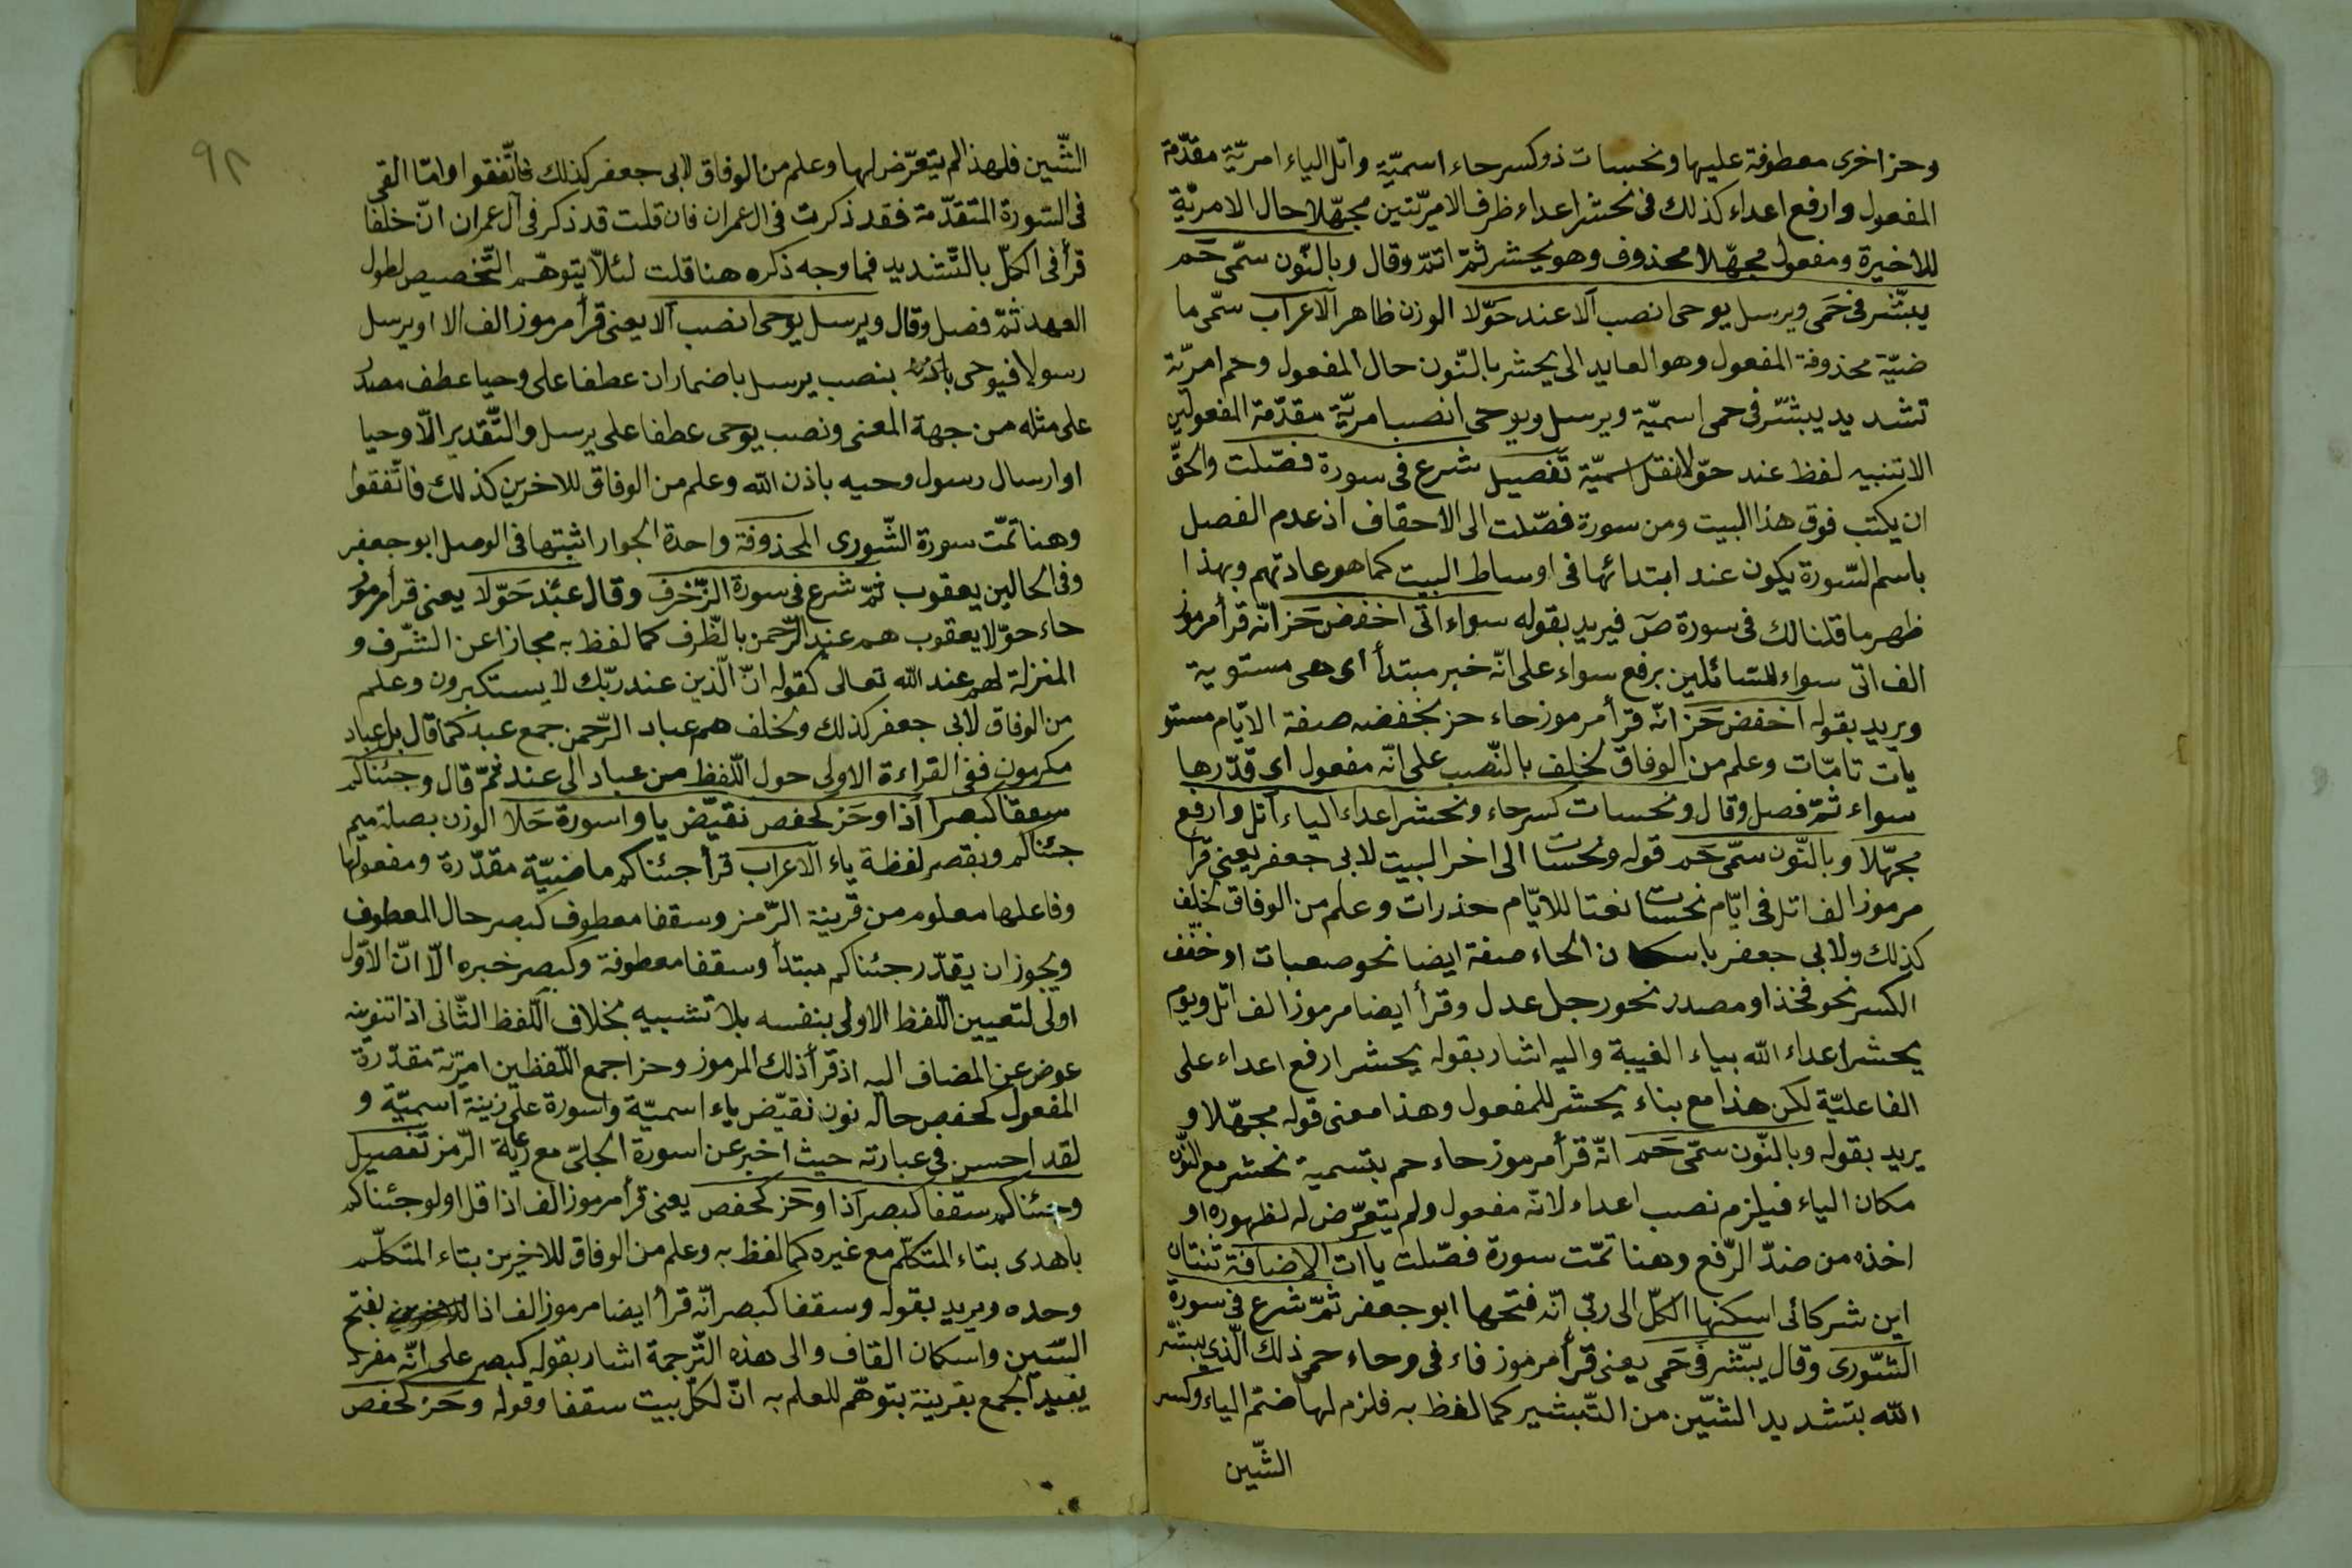 وحز اخرى معطوفة عليها ونحسات ذو كسر حاء اسميّة واتل الياء امريّة مقدّمة
المفعول وارفع اعداء كذلك فى نحشر اعداء ظرف الامريّتين مجهّلا حال الامريّة
للاخيرة ومفعول مجهّلا محذوف وهو يحشر ثمّ اتمّ وقال وبالنّون سمّى حَم
يبشّر فى حَمى ويرسل يوحى انصب آلا عند حَوّلا الوزن ظاهر الاعراب سمّى ما
ضيّة محذوفة المفعول وهو العايد الى يحشر بالنّون حال المفعول وحم امريّة
تشديد يبشّر فى حمى اسميّة ويرسل ويوحى انصب امريّة مقدّمة المفعولين
الا تنبيه لفظ عند حوّلا نقل اسميّة تفصيل شرع فى سورة فصّلت والحقّ
ان يكتب فوق هذا البيت ومن سورة فصّلت الى الاحقاف اذ عدم الفصل
باسم السّورة يكون عند ابتدائها فى اوساط البيت كما هو عادتهم وبهذا
ظهر ما قلنا لك فى سورة صٓ فيريد بقوله سواء اتى اخفض حَز انّه قرأ مرموز
الف اتى سواء للسّائلين برفع سواء على انّه خبر مبتدأ اى هى مستوية
ويريد بقوله اخفض حَز انّه قرأ مرموز حاء حز بخفضه صفة الايّام مستو
يات تامّات وعلم من الوفاق لخلف بالنّصب على انّه مفعول اى قدّرها
سواء ثمّ فصل وقال ونحسات كسر حاء ونحشر اعداء الياء اتل وارفع
مجهّلا وبالنّون سمّى حَم قوله ونحسات الى اخر البيت لابى جعفر يعنى قرأ
مرموز الف اتل فى ايّام نحسات نعتا للايّام حذرات وعلم من الوفاق لخلف
كذلك ولابى جعفر باسكان الحاء صفة ايضا نحو صعبات او خفّف
الكسر نحو فخذ او مصدر نحو رجل عدل وقرأ ايضا مرموز الف اتل ويوم
يحشر اعداء الله بياء الغيبة واليه اشار بقوله يحشر ارفع اعداء على
الفاعليّة لكن هذا مع بناء يحشر للمفعول وهذا معنى قوله مجهّلا و
يريد بقوله وبالنّون سمّى حَم انّه قرأ مرموز حاء حم بتسمية نحشر مع النّون
مكان الياء فيلزم نصب اعداء لانّه مفعول ولم يتعرّض له لظهوره او
اخذه من ضدّ الرّفع وهنا تمّت سورة فصّلت ياآت الاضافة ثنتان
اين شركائى اسكنها الكلّ الى ربّى انّه فتحها ابو جعفر ثمّ شرع فى سورة
الشّورى وقال يبّشر فى حَمى يعنى قرأ مرموز فاء فى وحاء حمى ذلك الّذى يبشّر
الله بتشديد الشّين من التّبشير كما لفظ به فلزم لها ضمّ الياء وكسر
الشّين
٩٢
الشّين فلهذا لم يتعرّض لها وعلم من الوفاق لابى جعفر كذلك فاتّفقوا وامّا الّتى
فى السّورة المتقدّمة فقد ذكرت فى ال عمران فان قلت قد ذكر فى آل عمران انّ خلفا
قرأ فى الكلّ بالتّشديد فما وجه ذكره هنا قلت لئلّا يتوهّم التّخصيص لطول
العهد ثمّ فصل وقال ويرسل يوحى انصب آلا يعنى قرأ مرموز الف الا او يرسل
رسولا فيوحى باذنه بنصب يرسل باضمار ان عطفا على وحيا عطف مصدر
على مثله من جهة المعنى ونصب يوحى عطفا على يرسل والتّقدير الّا وحيا
او ارسال رسول وحيه باذن الله وعلم من الوفاق للاخرين كذلك فاتّفقوا
وهنا تمّت سورة الشّورى المحذوفة واحدة الجوار اثبتها فى الوصل ابو جعفر
وفى الحالين يعقوب ثمّ شرع فى سورة الزّخرف وقال عند حَوّلا يعنى قرأ مرموز
حاء حوّلا يعقوب هم عند الرّحمن بالظّرف كما لفظ به مجازا عن الشّرف و
المنزلة لهم عند الله تعالى كقوله انّ الّذين عند ربّك لا يستكبرون وعلم
من الوفاق لابى جعفر كذلك ولخلف هم عباد الرّحمن جمع عبد كما قال بل عباد
مكرمون ففى القراءة الاولى حول اللّفظ من عباد الى عند ثمّ قال وجئناكم
سقفا كبصر اذا وحَز كحفص نقيّض يا واسورة حَلا الوزن بصلة ميم
جئناكم وبقصر لفظة ياء الاعراب قرأ جئناكم ماضيّة مقدّرة ومفعولها
وفاعلها معلوم من قرينة الرّمز وسقفا معطوف كبصر حال المعطوف
ويجوز ان يقدّر جئناكم مبتدأ وسقفا معطوفة وكبصر خبره الّا انّ الاوّل
اولى لتعيين اللّفظ الاولى بنفسه بلا تشبيه بخلاف اللّفظ الثّانى اذا تنوينه
عوض عن المضاف اليه اذ قرأ ذلك المرموز وحز اجمع اللّفظين امريّة مقدّرة
المفعول كحفص حاله نون نقيّض ياء اسميّة واسورة على زينة اسميّة و
لقد احسن فى عبارته حيث اخبر عن اسورة الحلىّ مع رعاية الرّمز تفصيل
وجئناكم سقفا كبصر اذا وحَز كحفص يعنى قرأ مرموز الف اذا قل اولو جئناكم
باهدى بتاء المتكلّم مع غيره كما لفظ به وعلم من الوفاق للاخيرين بتاء المتكلّم
وحده ويريد بقوله وسقفا كبصر انّه قرأ ايضا مرموز الف اذا بفتح
السّين واسكان القاف والى هذه التّرجمة اشار بقوله كبصر على انّه مفرد
يفيد الجمع بقرينة يتوهّم للعلم به انّ لكلّ بيت سقفا وقوله وحَز كحفص